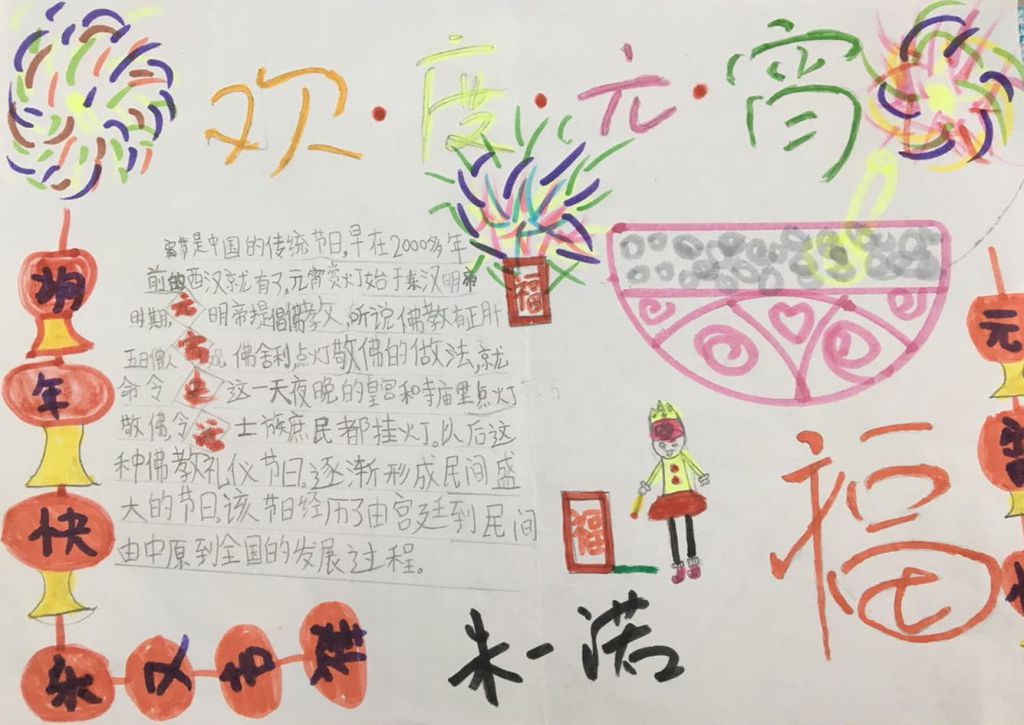 欢·度·元·宵
宵节是中国的传统节日,早在2000多年
前的西汉就有了,元宵赏灯始于东汉明帝
时期,明帝提倡佛教,所说佛教有正月
五日僧人 佛舍利,点灯敬佛的做法,就
命令 这一天夜晚的皇宫和寺庙里点灯
敬佛令 士族庶民都挂灯。以后这
种佛教礼仪节日逐渐形成民间盛
大的节日,该节日经历了由宫廷到民间
由中原到全国的发展过程。
元
宵
福
福
福
年
快
元
朱一诺